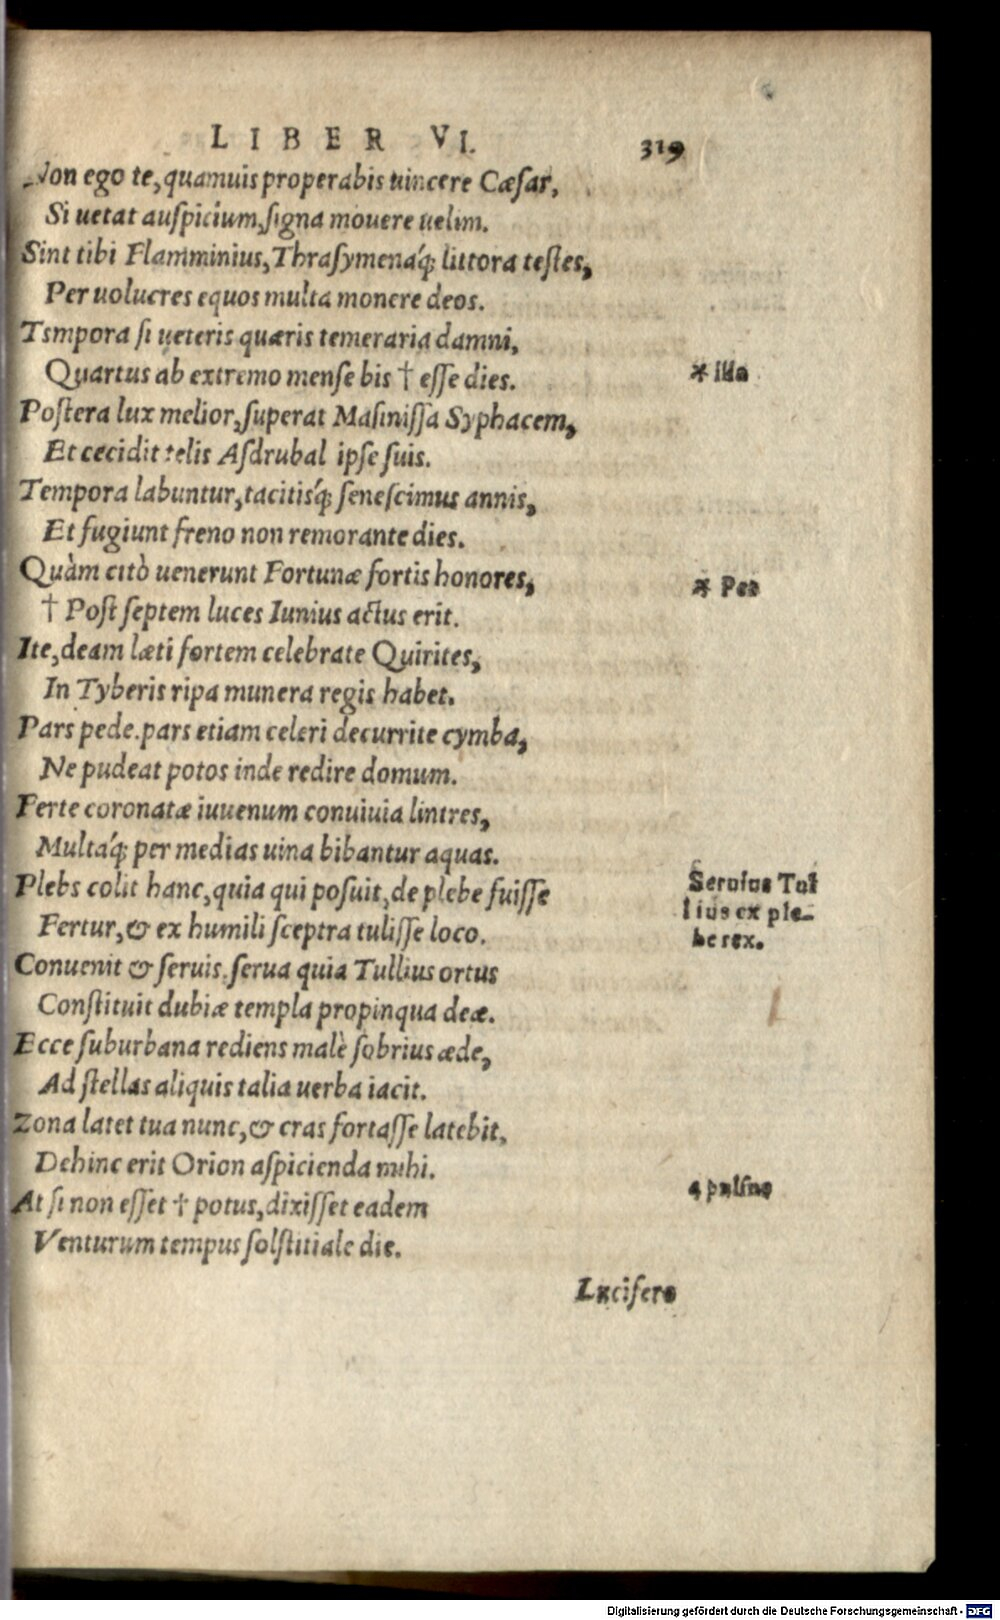 LIBER VI. 319
Non ego te, quamuis properabis uincere Cæsar,
Si uetat auſpicium, ſigna mouere uelim.
Sint tibi Flamminius, Thraſymenáq́; littora teſtes,
Per uolucres equos multa monere deos.
Tsmpora ſi ueteris quæris temeraria damni,
Quartus ab extremo menſe bis † eſſe dies.
* illa
Poſtera lux melior, ſuperat Maſiniſſa Syphacem,
Et cecidit telis Aſdrubal ipſe ſuis.
Tempora labuntur, tacitisq́; ſeneſcimus annis,
Et fugiunt freno non remorante dies.
Quàm citò uenerunt Fortunæ fortis honores,
* Per
† Poſt ſeptem luces Iunius actus erit.
Ite, deam læti fortem celebrate Quirites,
In Tyberis ripa munera regis habet.
Pars pede. pars etiam celeri decurrite cymba,
Ne pudeat potos inde redire domum.
Ferte coronatæ iuuenum conuiuia lintres,
Multáq́; per medias uina bibantur aquas.
Plebs colit hanc, quia qui poſuit, de plebe fuiſſe
Seruius Tul
lius ex ple-
be rex.
Fertur, & ex humili ſceptra tuliſſe loco.
Conuenit & ſeruis. ſerua quia Tullius ortus
Conſtituit dubiæ templa propinqua deæ.
Ecce ſuburbana rediens malè ſobrius æde,
Ad ſtellas aliquis talia uerba iacit.
Zona latet tua nunc, & cras fortaſſe latebit,
Dehinc erit Orion aſpicienda mihi.
At ſi non eſſet † potus, dixiſſet eadem
Venturum tempus ſolſtitiale die.
Lucifero
Digitalisierung gefördert durch die Deutsche Forschungsgemeinschaft - DFG